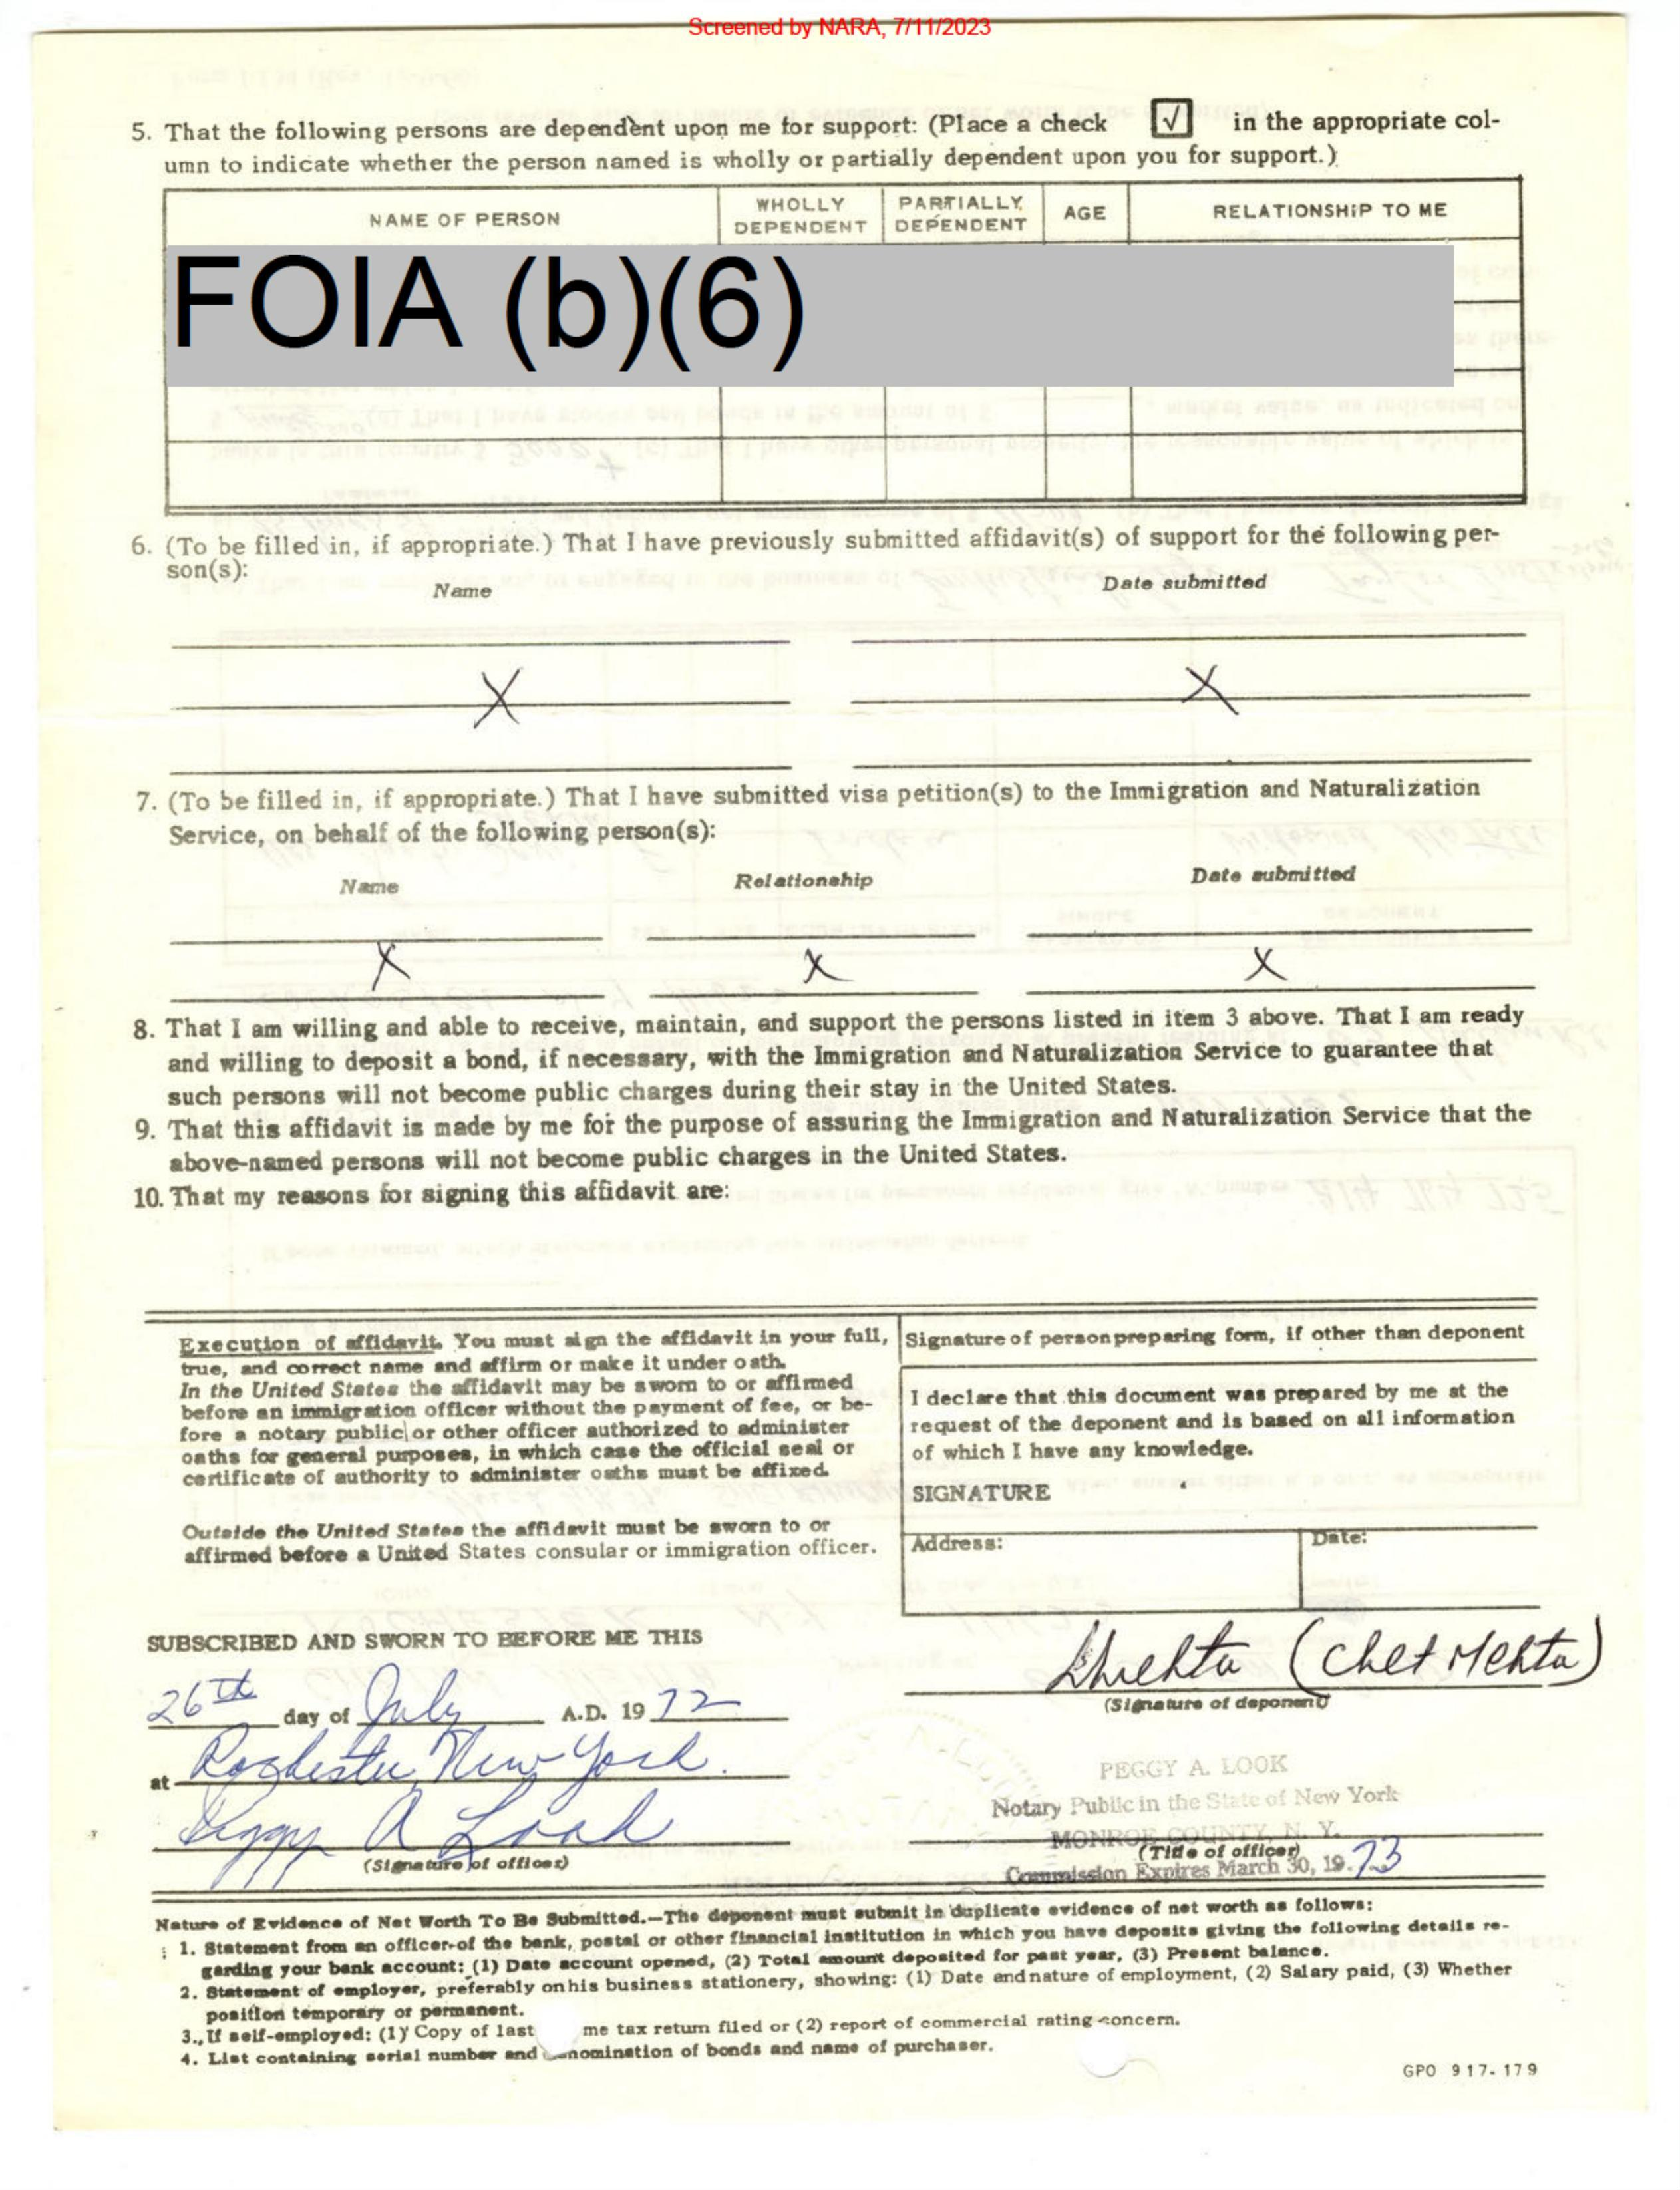 Screened by NARA, 7/11/2023
5. That the following persons are dependent upon me for support: (Place a check √ in the appropriate col-
umn to indicate whether the person named is wholly or partially dependent upon you for support.)
NAME OF PERSON WHOLLY DEPENDENT PARTIALLY DEPENDENT AGE RELATIONSHIP TO ME
FOIA (b)(6)
6. (To be filled in, if appropriate.) That I have previously submitted affidavit(s) of support for the following per-
son(s):
Name Date submitted
X X
7. (To be filled in, if appropriate.) That I have submitted visa petition(s) to the Immigration and Naturalization
Service, on behalf of the following person(s):
Name Relationship Date submitted
X X X
8. That I am willing and able to receive, maintain, and support the persons listed in item 3 above. That I am ready
and willing to deposit a bond, if necessary, with the Immigration and Naturalization Service to guarantee that
such persons will not become public charges during their stay in the United States.
9. That this affidavit is made by me for the purpose of assuring the Immigration and Naturalization Service that the
above-named persons will not become public charges in the United States.
10. That my reasons for signing this affidavit are:
Execution of affidavit. You must sign the affidavit in your full,
true, and correct name and affirm or make it under oath.
In the United States the affidavit may be sworn to or affirmed
before an immigration officer without the payment of fee, or be-
fore a notary public or other officer authorized to administer
oaths for general purposes, in which case the official seal or
certificate of authority to administer oaths must be affixed.
Outside the United States the affidavit must be sworn to or
affirmed before a United States consular or immigration officer.
Signature of person preparing form, if other than deponent
I declare that this document was prepared by me at the
request of the deponent and is based on all information
of which I have any knowledge.
SIGNATURE
Address: Date:
SUBSCRIBED AND SWORN TO BEFORE ME THIS
26th day of July A.D. 19 72
at Rochester, New York.
Peggy A Look
(Signature of officer)
(Chet Mehta)
(Signature of deponent)
PEGGY A. LOOK
Notary Public in the State of New York
MONROE COUNTY, N. Y.
(Title of officer)
Commission Expires March 30, 19 73
Nature of Evidence of Net Worth To Be Submitted.—The deponent must submit in duplicate evidence of net worth as follows:
1. Statement from an officer of the bank, postal or other financial institution in which you have deposits giving the following details re-
garding your bank account: (1) Date account opened, (2) Total amount deposited for past year, (3) Present balance.
2. Statement of employer, preferably on his business stationery, showing: (1) Date and nature of employment, (2) Salary paid, (3) Whether
position temporary or permanent.
3. If self-employed: (1) Copy of last me tax return filed or (2) report of commercial rating concern.
4. List containing serial number and nomination of bonds and name of purchaser.
GPO 917-179